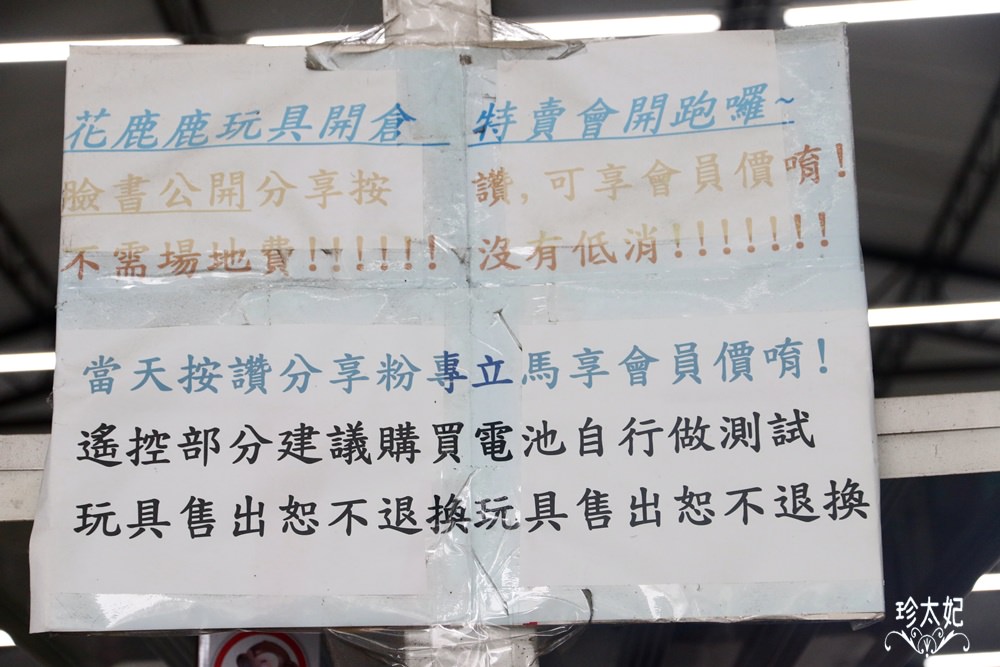 花鹿鹿玩具開倉 特賣會開跑囉~
臉書公開分享按 讚,可享會員價唷!
不需場地費!!!!!! 沒有低消!!!!!!!
當天按讚分享粉專立馬享會員價唷!
遙控部分建議購買電池自行做測試
玩具售出恕不退換玩具售出恕不退換
珍太妃